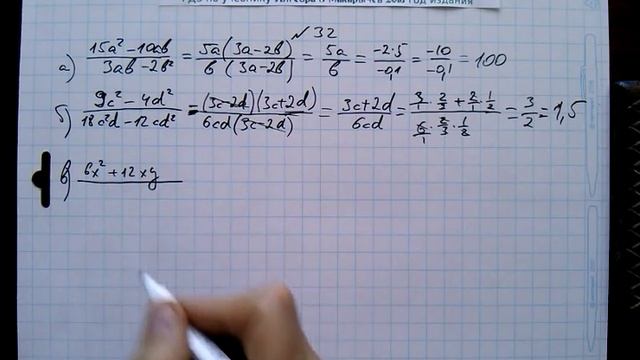 ГДЗ по учебнику Алгебра 8 Макарычев год издания
√ 32
а) (15a² − 10ab)/(3ab − 2b²) = 5a(3a−2b)/b(3a−2b) = 5a/b = −2·5/−0,1 = −10/−0,1 = 100
б) (9c² − 4d²)/(18c²d − 12cd²) = (3c−2d)(3c+2d)/6cd(3c−2d) = (3c+2d)/6cd = = 3/2 = 1,5
в) 6x² + 12xy